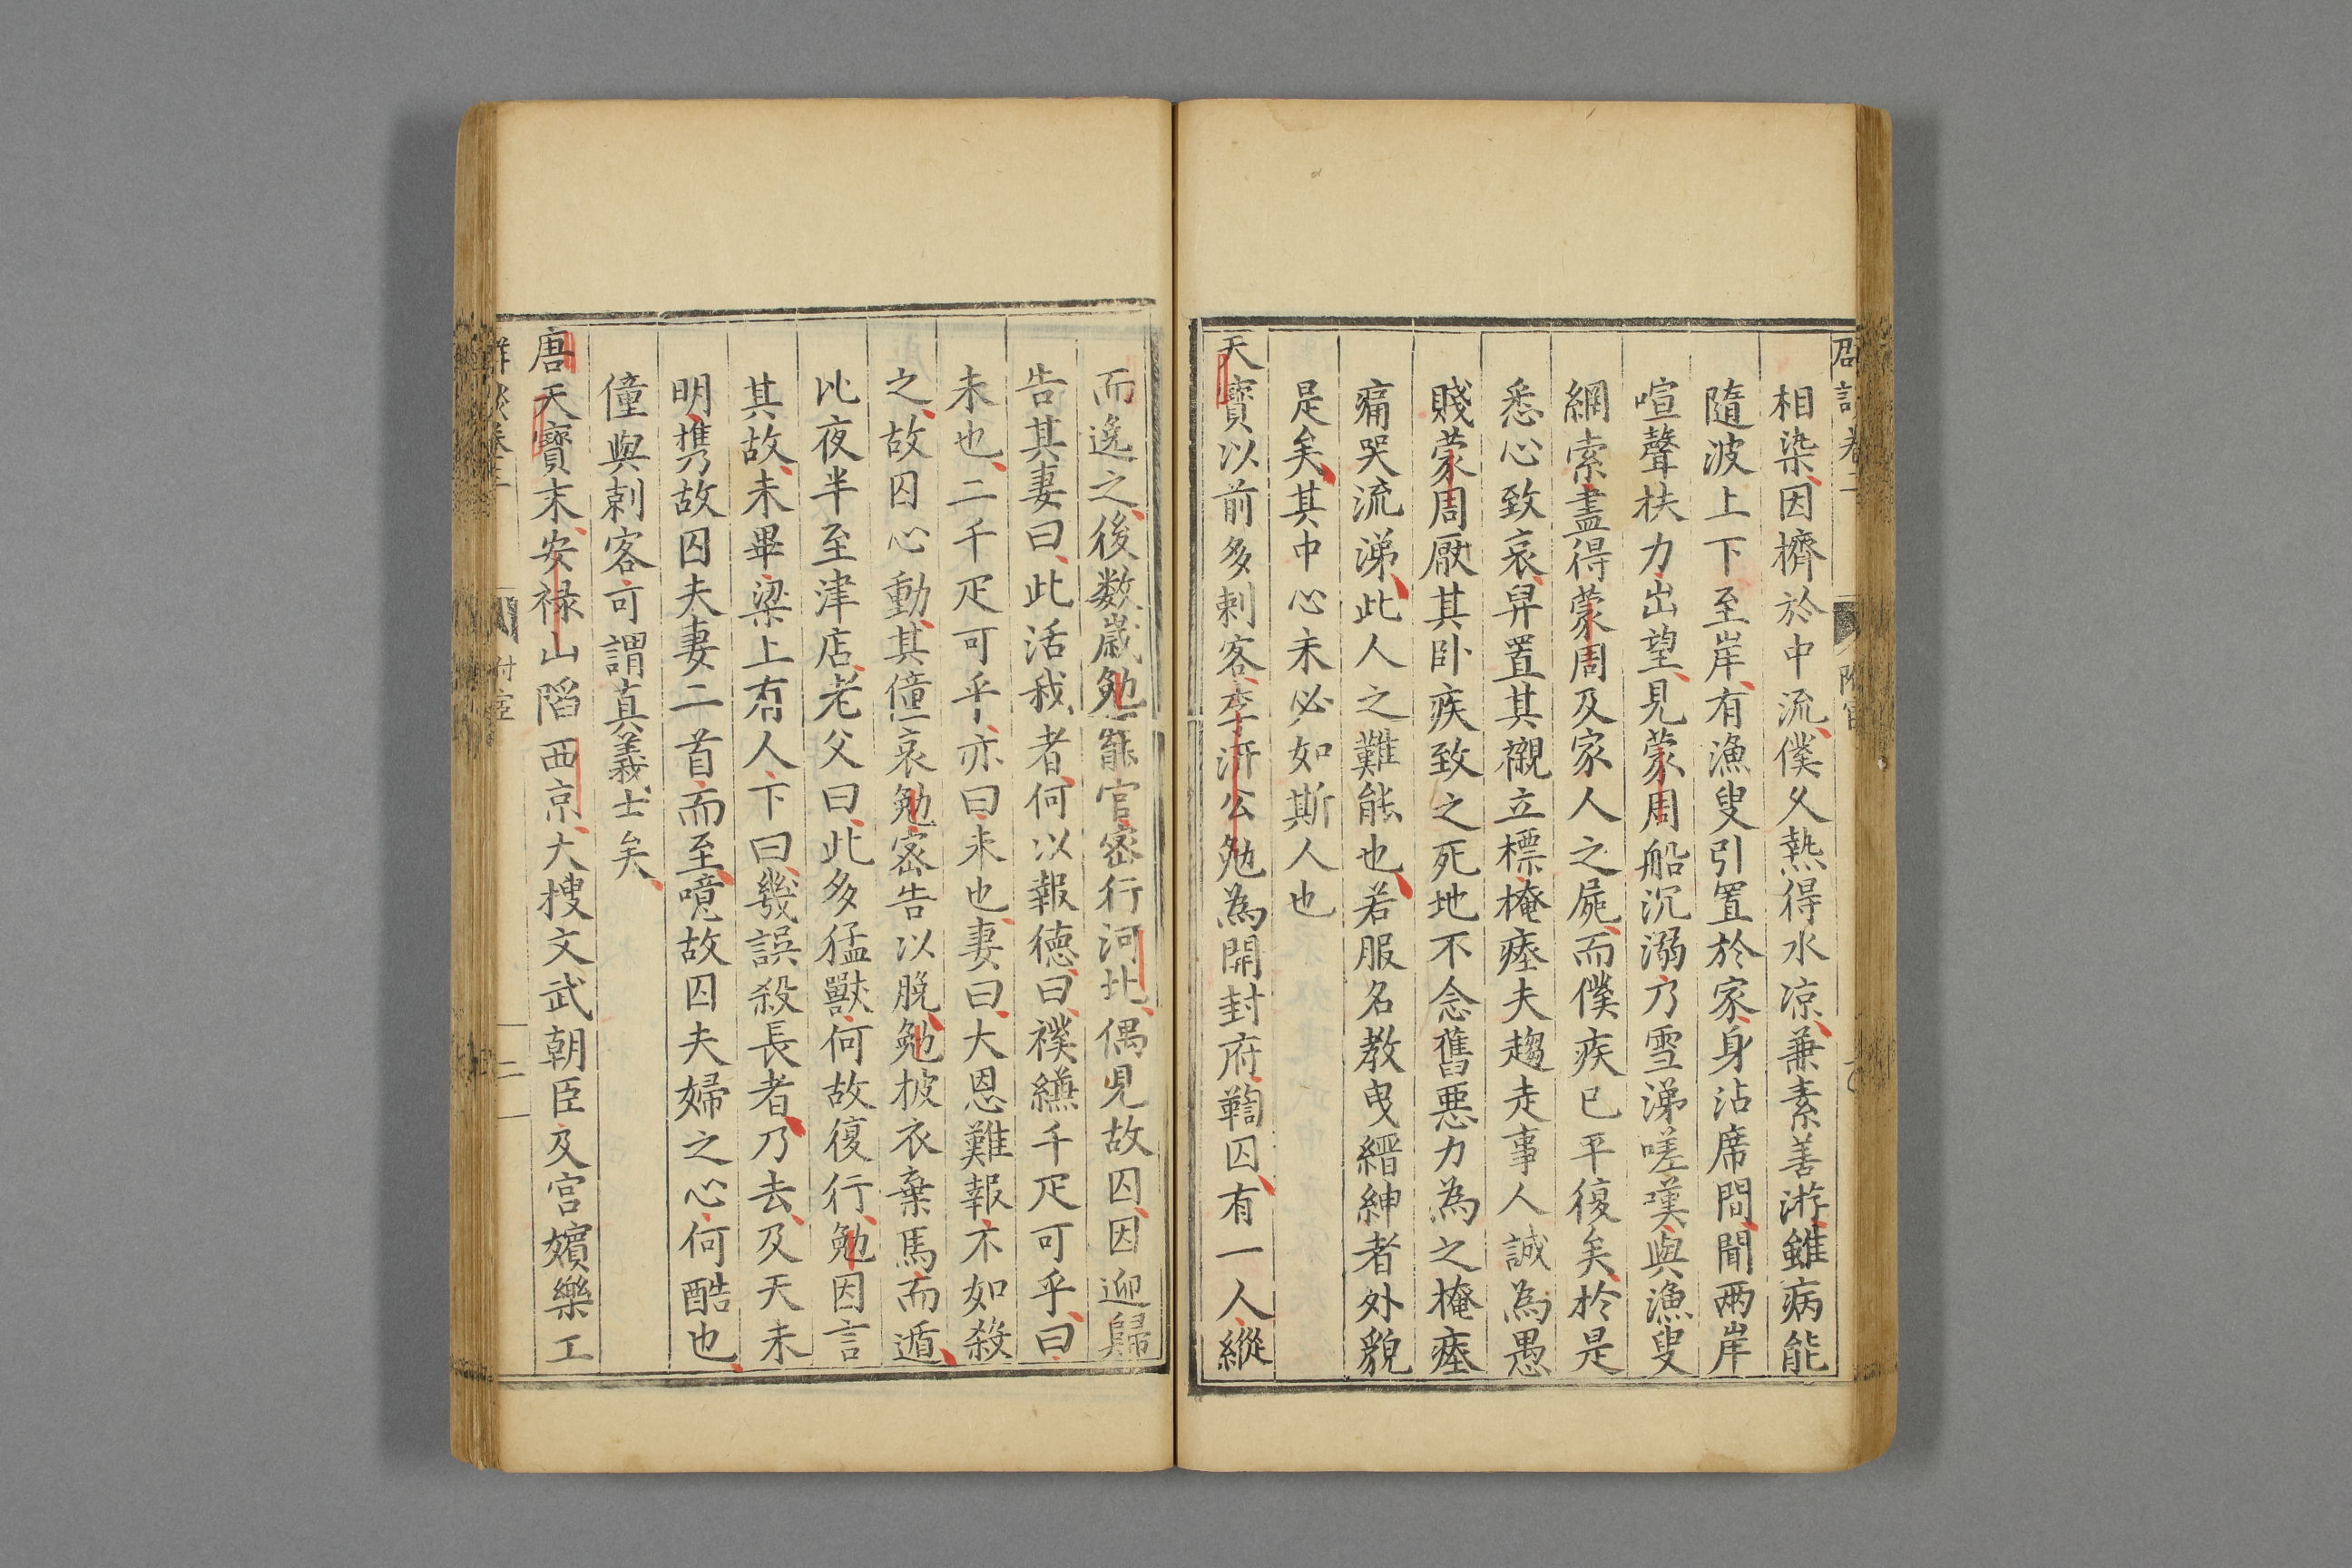 相染因擠於中流僕久熱得水凉兼素善游雖病能
隨波上下至岸有漁叟引置於家身沾席間聞兩岸
喧聲扶力出望見蒙周船沉溺乃雪涕嗟嘆與漁叟
網索盡得蒙周及家人之屍而僕疾已平復矣於是
悉心致哀舁置其櫬立標掩瘞夫趨走事人誠為愚
賤蒙周厭其卧疾致之死地不念舊惡力為之掩瘞
痛哭流涕此人之難能也若服名教曳縉紳者外貌
是矣其中心未必如斯人也
天寶以前多刺客李汧公勉為開封府鞫囚有一人縱
而逸之後数歲勉罷官密行河北偶見故囚因迎歸
告其妻曰此活我者何以報德曰襆縑千疋可乎曰
未也二千疋可乎亦曰未也妻曰大恩難報不如殺
之故囚心動其僮哀勉密告以脫勉披衣棄馬而遁
比夜半至津店老父曰此多猛獸何故復行勉因言
其故未畢梁上有人下曰幾誤殺長者乃去及天未
明携故囚夫妻二首而至噫故囚夫婦之心何酷也
僮與刺客可謂真義士矣
唐天寶末安禄山陷西京大搜文武朝臣及宮嬪樂工